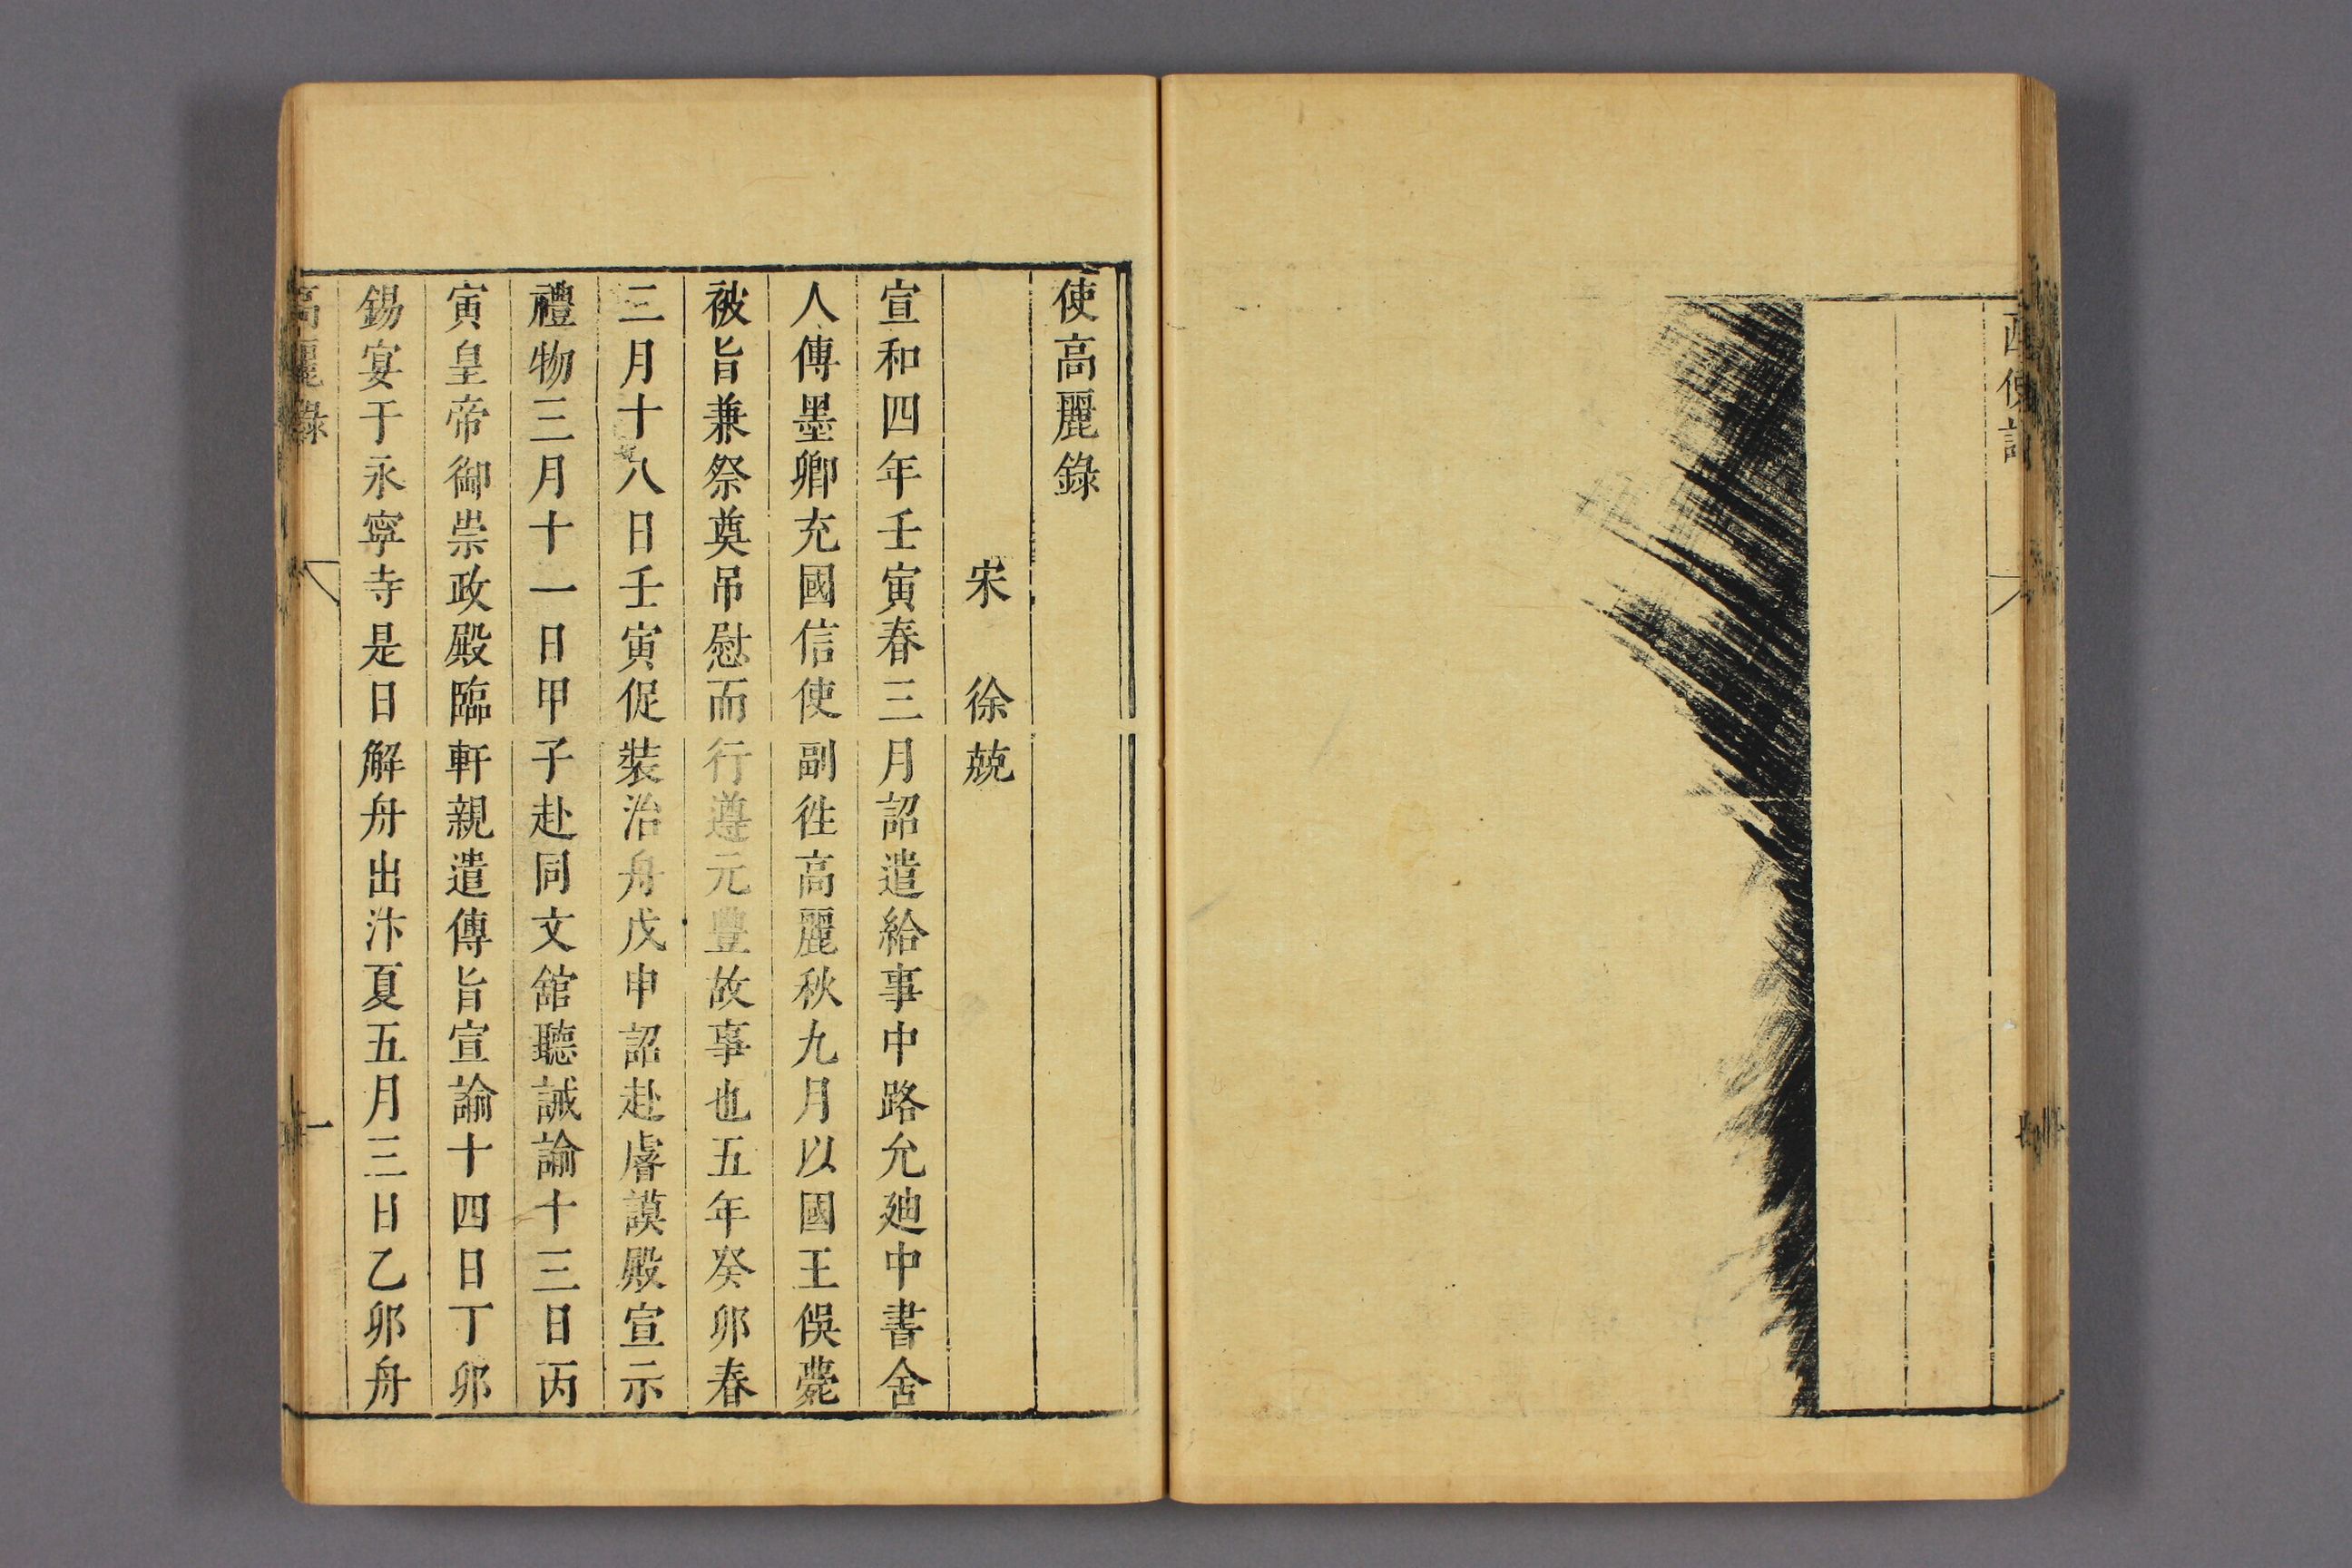 西使記
使高麗錄
宋 徐兢
宣和四年壬寅春三月詔遣給事中路允廸中書舍
人傳墨卿充國信使副徃高麗秋九月以國王俁薨
被旨兼祭奠吊慰而行遵元豐故事也五年癸卯春
三月十八日壬寅促裝治舟戊申詔赴睿謨殿宣示
禮物三月十一日甲子赴同文舘聽誡諭十三日丙
寅皇帝御崇政殿臨軒親遣傳旨宣諭十四日丁卯
錫宴于永寧寺是日解舟出汴夏五月三日乙卯舟
高麗錄 一